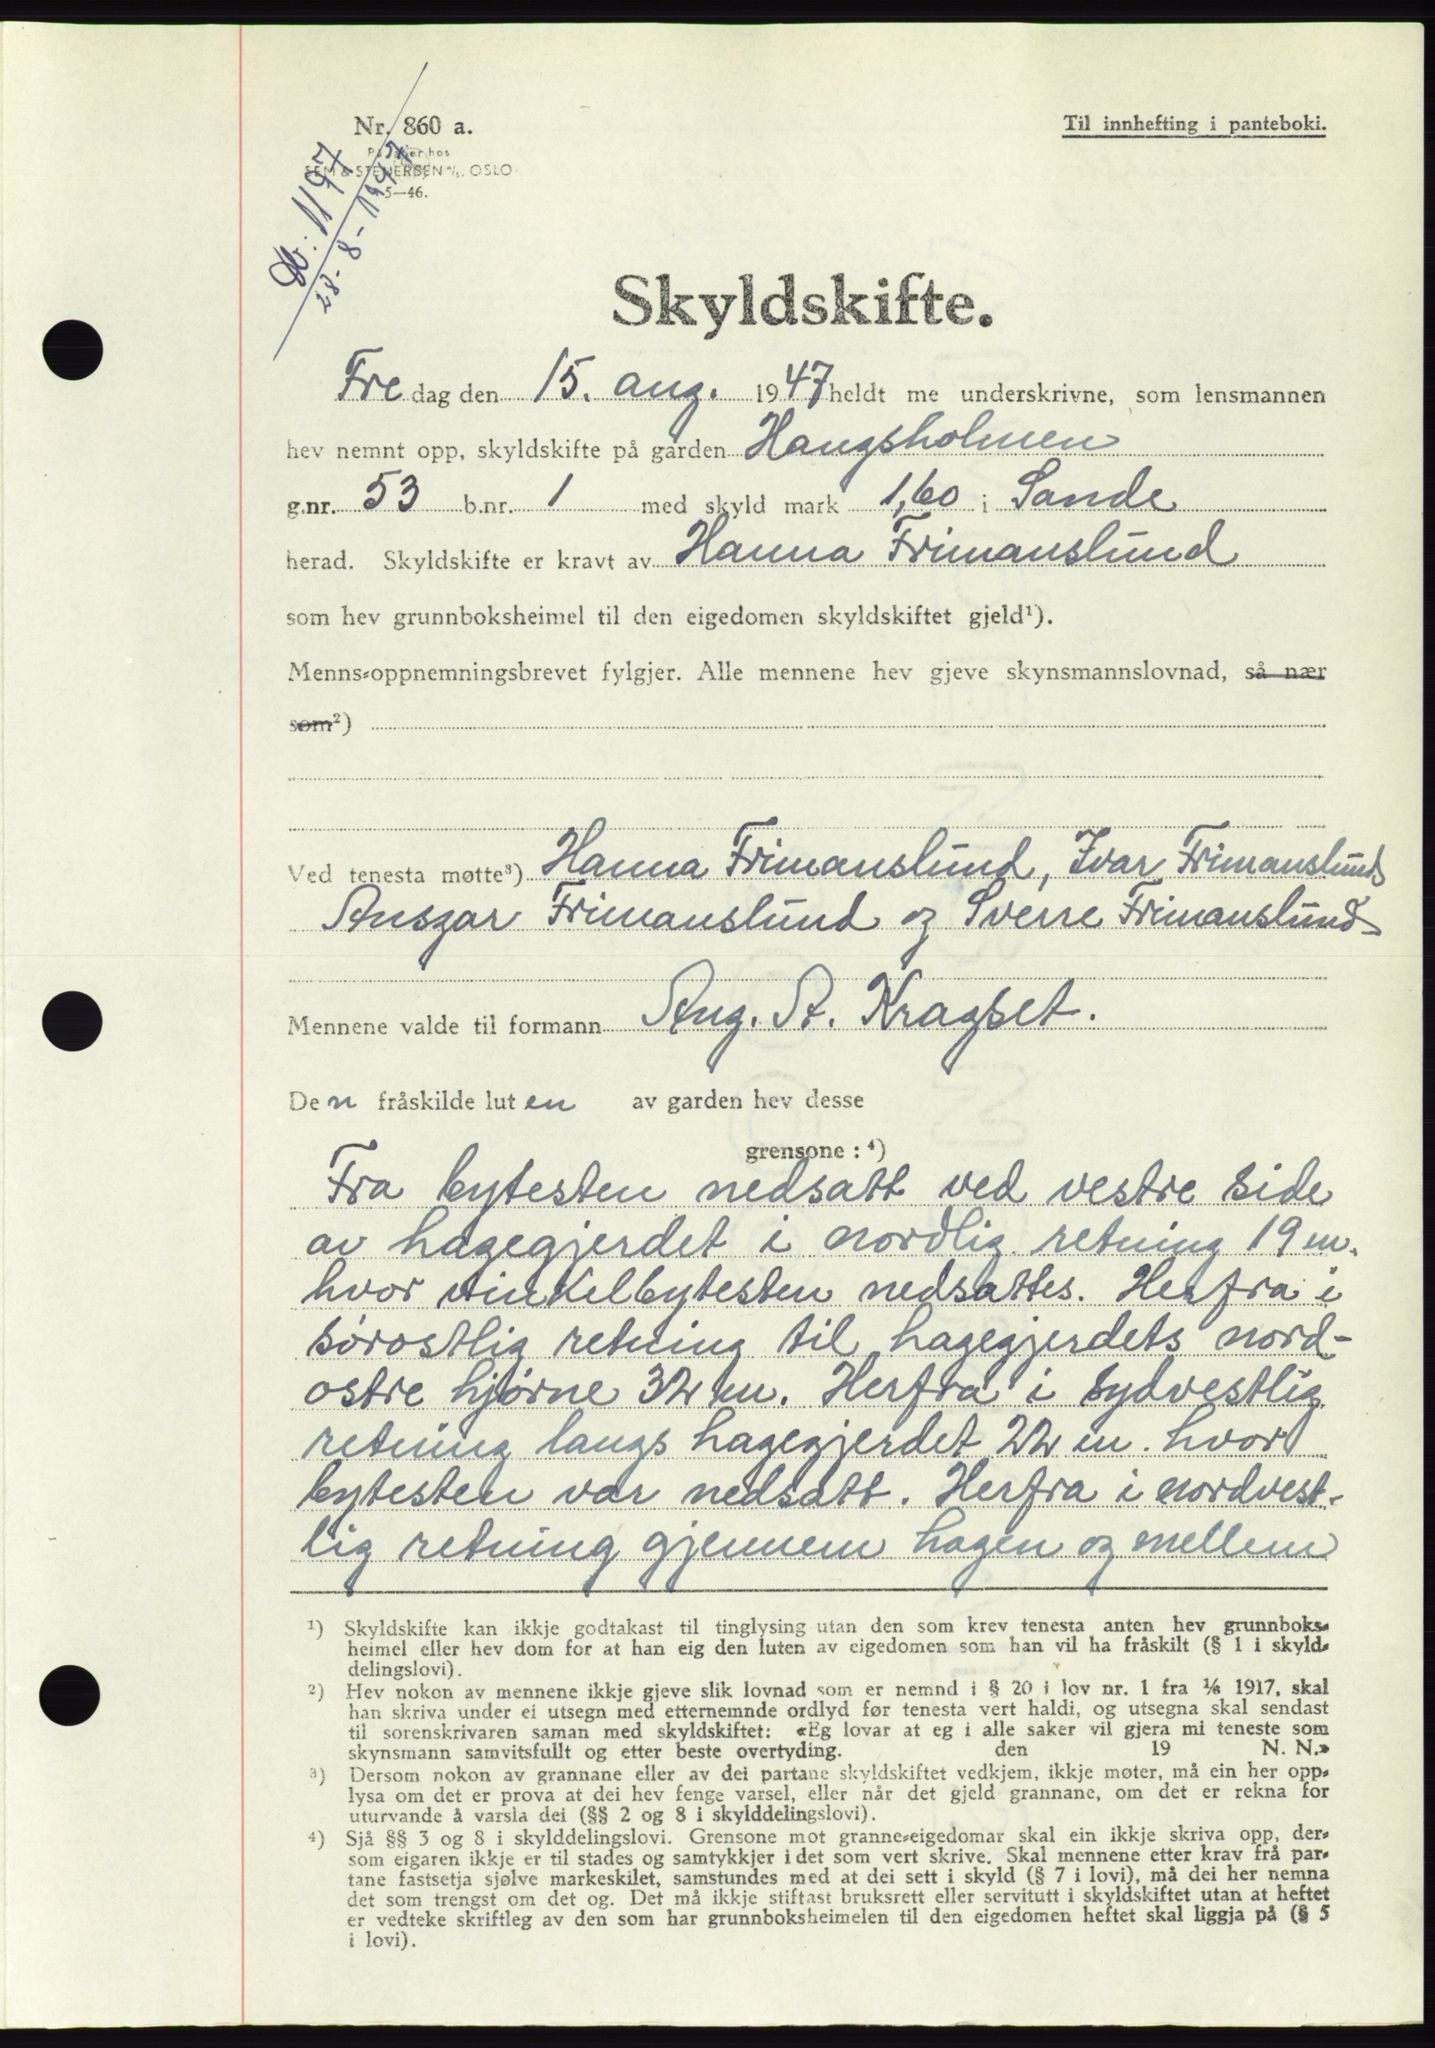 Nr. 860 a.
Til innhefting i panteboki.
På lager hos
SEM & STENERSEN A/S, OSLO
5—46.
Db: 1197
28-8-1947
Skyldskifte.
Fre dag den 15. aug. 1947 heldt me underskrivne, som lensmannen
hev nemnt opp, skyldskifte på garden Haugsholmen
g.nr. 53 b.nr. 1 med skyld mark 1,60 i Sande
herad. Skyldskifte er kravt av Hanna Frimanslund
som hev grunnboksheimel til den eigedomen skyldskiftet gjeld¹).
Menns-oppnemningsbrevet fylgjer. Alle mennene hev gjeve skynsmannslovnad, så nær
som²)
Ved tenesta møtte³) Hanna Frimanslund, Ivar Frimanslund
Ansgar Frimanslund og Sverre Frimanslund
Mennene valde til formann Aug. A. Kragset.
Den fråskilde luten av garden hev desse
grensone : ⁴)
Fra bytesten nedsatt ved vestre side
av hagegjerdet i nordlig retning 19 m.
hvor vinkelbytesten nedsattes. Herfra i
sørostlig retning til hagegjerdets nord-
ostre hjørne 32 m. Herfra i sydvestlig
retning langs hagegjerdet 22 m. hvor
bytesten var nedsatt. Herfra i nordvest-
lig retning gjennem hagen og mellem
¹) Skyldskifte kan ikkje godtakast til tinglysing utan den som krev tenesta anten hev grunnboks-
heimel eller hev dom for at han eig den luten av eigedomen som han vil ha fråskilt (§ 1 i skyld-
delingslovi).
²) Hev nokon av mennene ikkje gjeve slik lovnad som er nemnd i § 20 i lov nr. 1 fra 1/6 1917, skal
han skriva under ei utsegn med etternemnde ordlyd før tenesta vert haldi, og utsegna skal sendast
til sorenskrivaren saman med skyldskiftet: «Eg lovar at eg i alle saker vil gjera mi teneste som
skynsmann samvitsfullt og etter beste overtyding. den 19 N. N.»
³) Dersom nokon av grannane eller av dei partane skyldskiftet vedkjem, ikkje møter, må ein her opp-
lysa om det er prova at dei hev fenge varsel, eller når det gjeld grannane, om det er rekna for
uturvande å varsla dei (§§ 2 og 8 i skylddelingslovi).
⁴) Sjå §§ 3 og 8 i skylddelingslovi. Grensone mot granne-eigedomar skal ein ikkje skriva opp, der-
som eigaren ikkje er til stades og samtykkjer i det som vert skrive. Skal mennene etter krav frå par-
tane fastsetja sjølve markeskilet, samstundes med at dei sett i skyld (§ 7 i lovi), må dei her nemna
det som trengst om det og. Det må ikkje stiftast bruksrett eller servitutt i skyldskiftet utan at heftet
er vedteke skriftleg av den som har grunnboksheimelen til den eigedomen heftet skal liggja på (§ 5
i lovi).